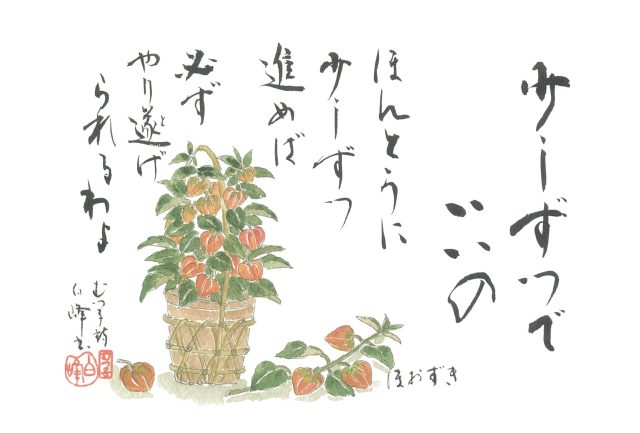 少しずつで
いいの
ほんとうに
少しずつ
進めば
必ず
やり遂げ
と
られるわよ
ほおずき